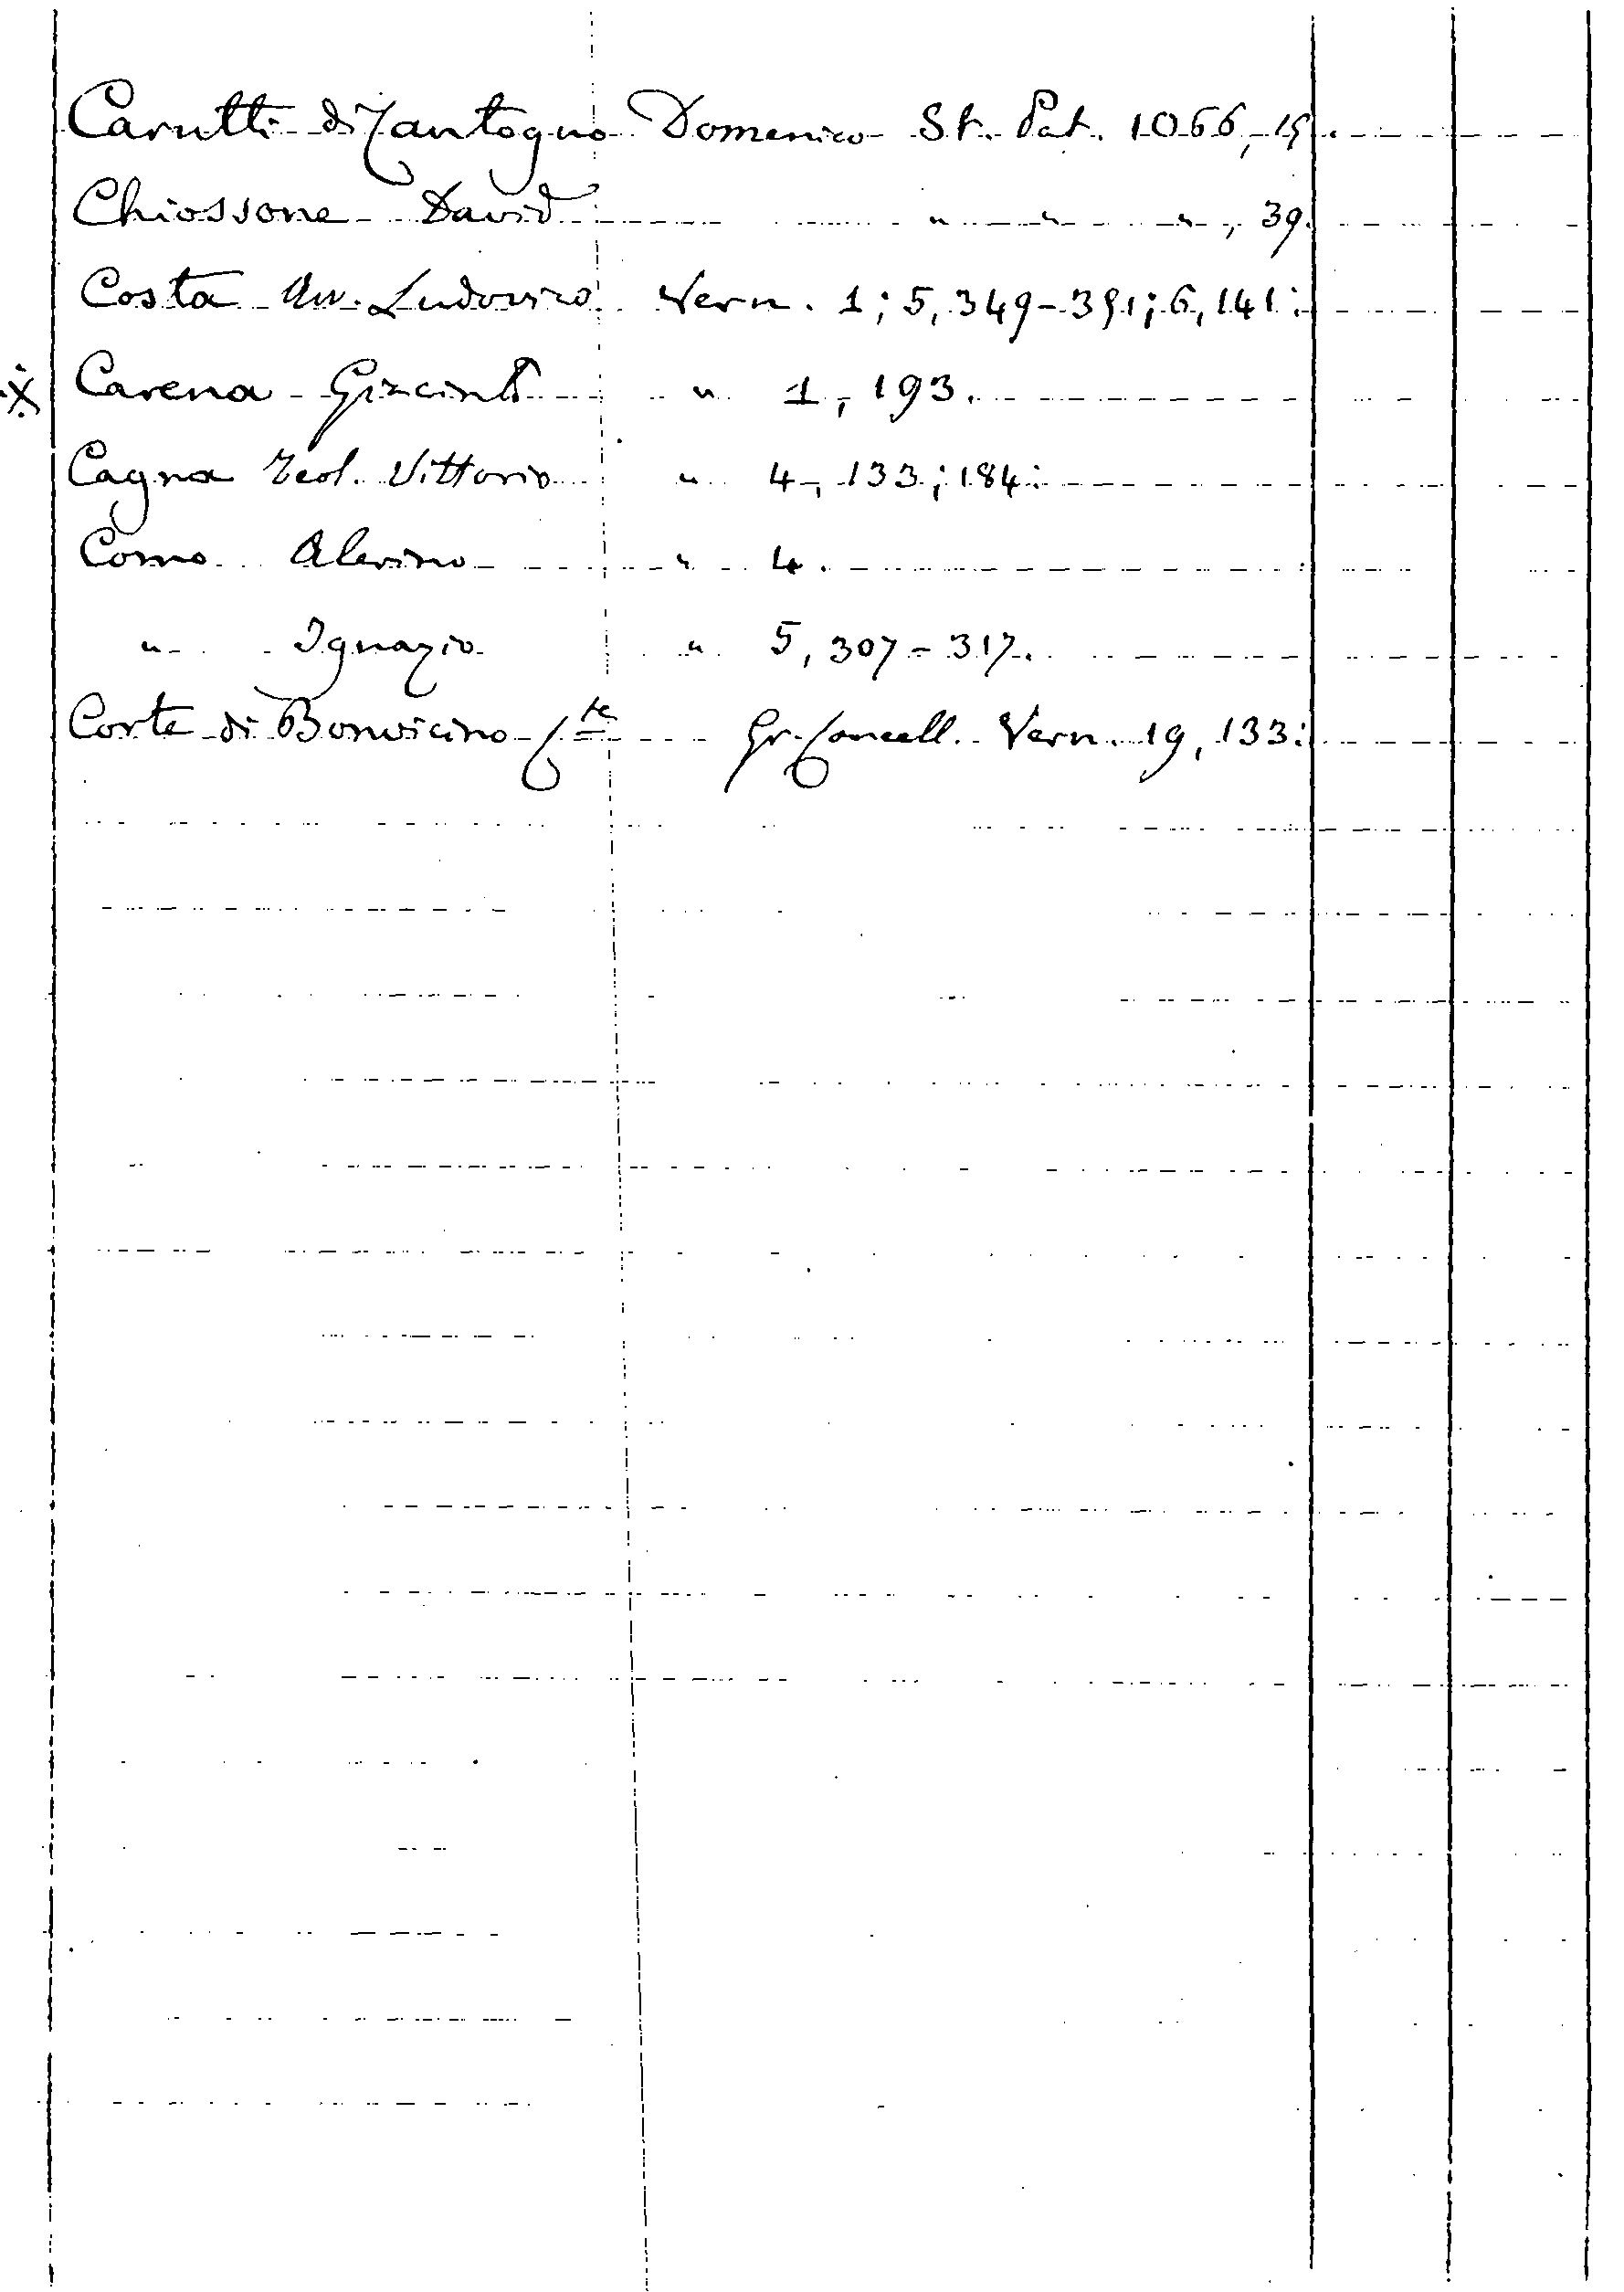 Carutti di Cantogno Domenico St. Pat. 1066, 15.
Chiossone David " " ", 39.
Costa Av. Ludovico Vern. 1; 5, 349-391; 6, 141:
Carena Giacinto " 1, 193.
Cagna Teol. Vittorio " 4, 133; 184:
Como Alerino " 4.
" Ignazio " 5, 307-317.
Corte di Bonvicino Cte Gr. Cancell. Vern. 19, 133: